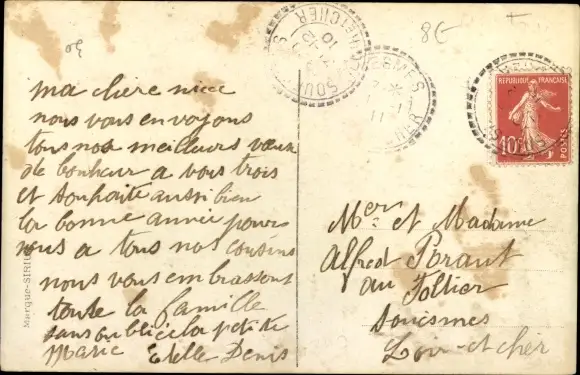 8€
ma chère niece
nous vous envoyons
tous nos meilleurs vœux
de bonheur a vous trois
et souhaite aussi bien
la bonne année pour
nous a tous nos cousins
nous vous embrassent
toute la famille
sans oublié la petite
Marie Estelle Denis
Marque-SIRIUS
RÉPUBLIQUE FRANÇAISE
10c
POSTES
Mer et Madame
Alfred
au
Souesmes
Loir-et-cher